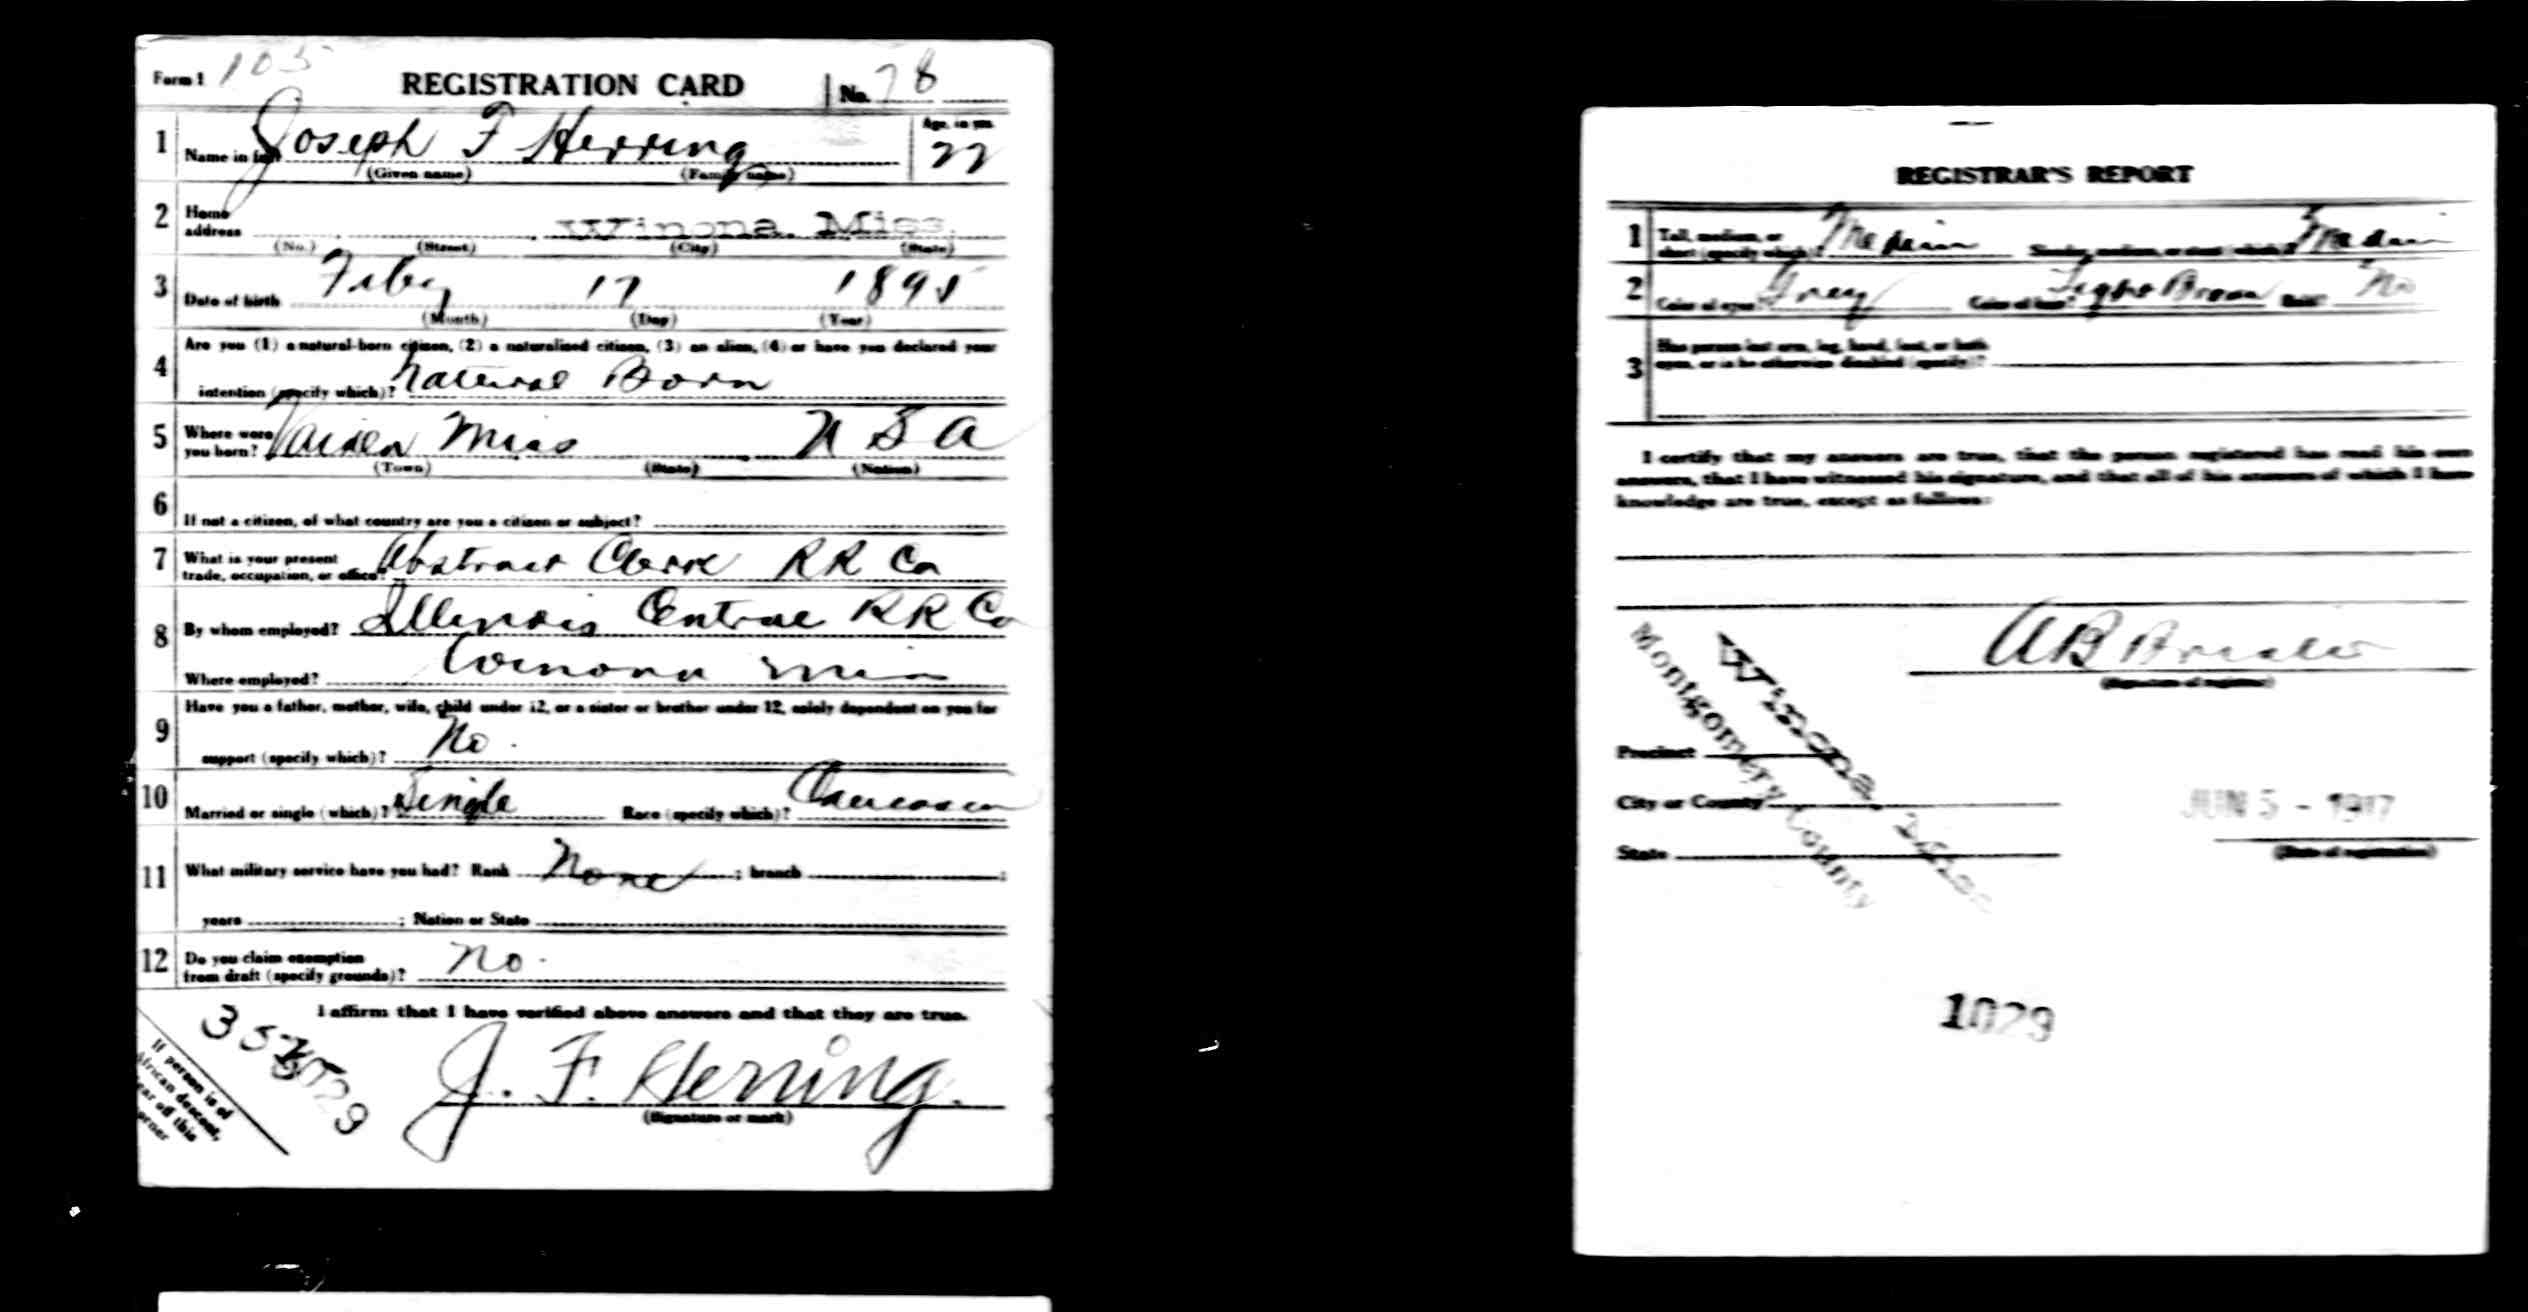 Form 1 105 REGISTRATION CARD No. 78
1 Name in full Joseph F Herring Age, in yrs. 22
(Given name) (Family name)
2 Home address Winona, Miss.
(No.) (Street) (City) (State)
3 Date of birth Feby 17 1895
(Month) (Day) (Year)
4 Are you (1) a natural-born citizen, (2) a naturalized citizen, (3) an alien, (4) or have you declared your
intention (specify which)? Natural Born
5 Where were you born? Vaiden Miss U S A
(Town) (State) (Nation)
6 If not a citizen, of what country are you a citizen or subject?
7 What is your present trade, occupation, or office? Abstract Clerk RR Co
8 By whom employed? Illinois Central RR Co
Where employed? Winona Miss
9 Have you a father, mother, wife, child under 12, or a sister or brother under 12, solely dependent on you for
support (specify which)? No.
10 Married or single (which)? Single Race (specify which)? Caucasian
11 What military service have you had? Rank None ; branch ;
years ; Nation or State
12 Do you claim exemption from draft (specify grounds)? No.
I affirm that I have verified above answers and that they are true.
J. F. Herring.
(Signature or mark)
If person is of
African descent,
tear off this
corner
REGISTRAR'S REPORT
1 Tall, medium, or short (specify which)? Medium Slender, medium, or stout (which)? Medium
2 Color of eyes? Grey Color of hair? Light Brown Bald? No
3 Has person lost arm, leg, hand, foot, or both
eyes, or is he otherwise disabled (specify)?
I certify that my answers are true, that the person registered has read his own
answers, that I have witnessed his signature, and that all of his answers of which I have
knowledge are true, except as follows:
A B
(Signature of registrar)
Precinct
City or County
State
Winona, Miss.
Montgomery County
JUN 5 - 1917
(Date of registration)
1029